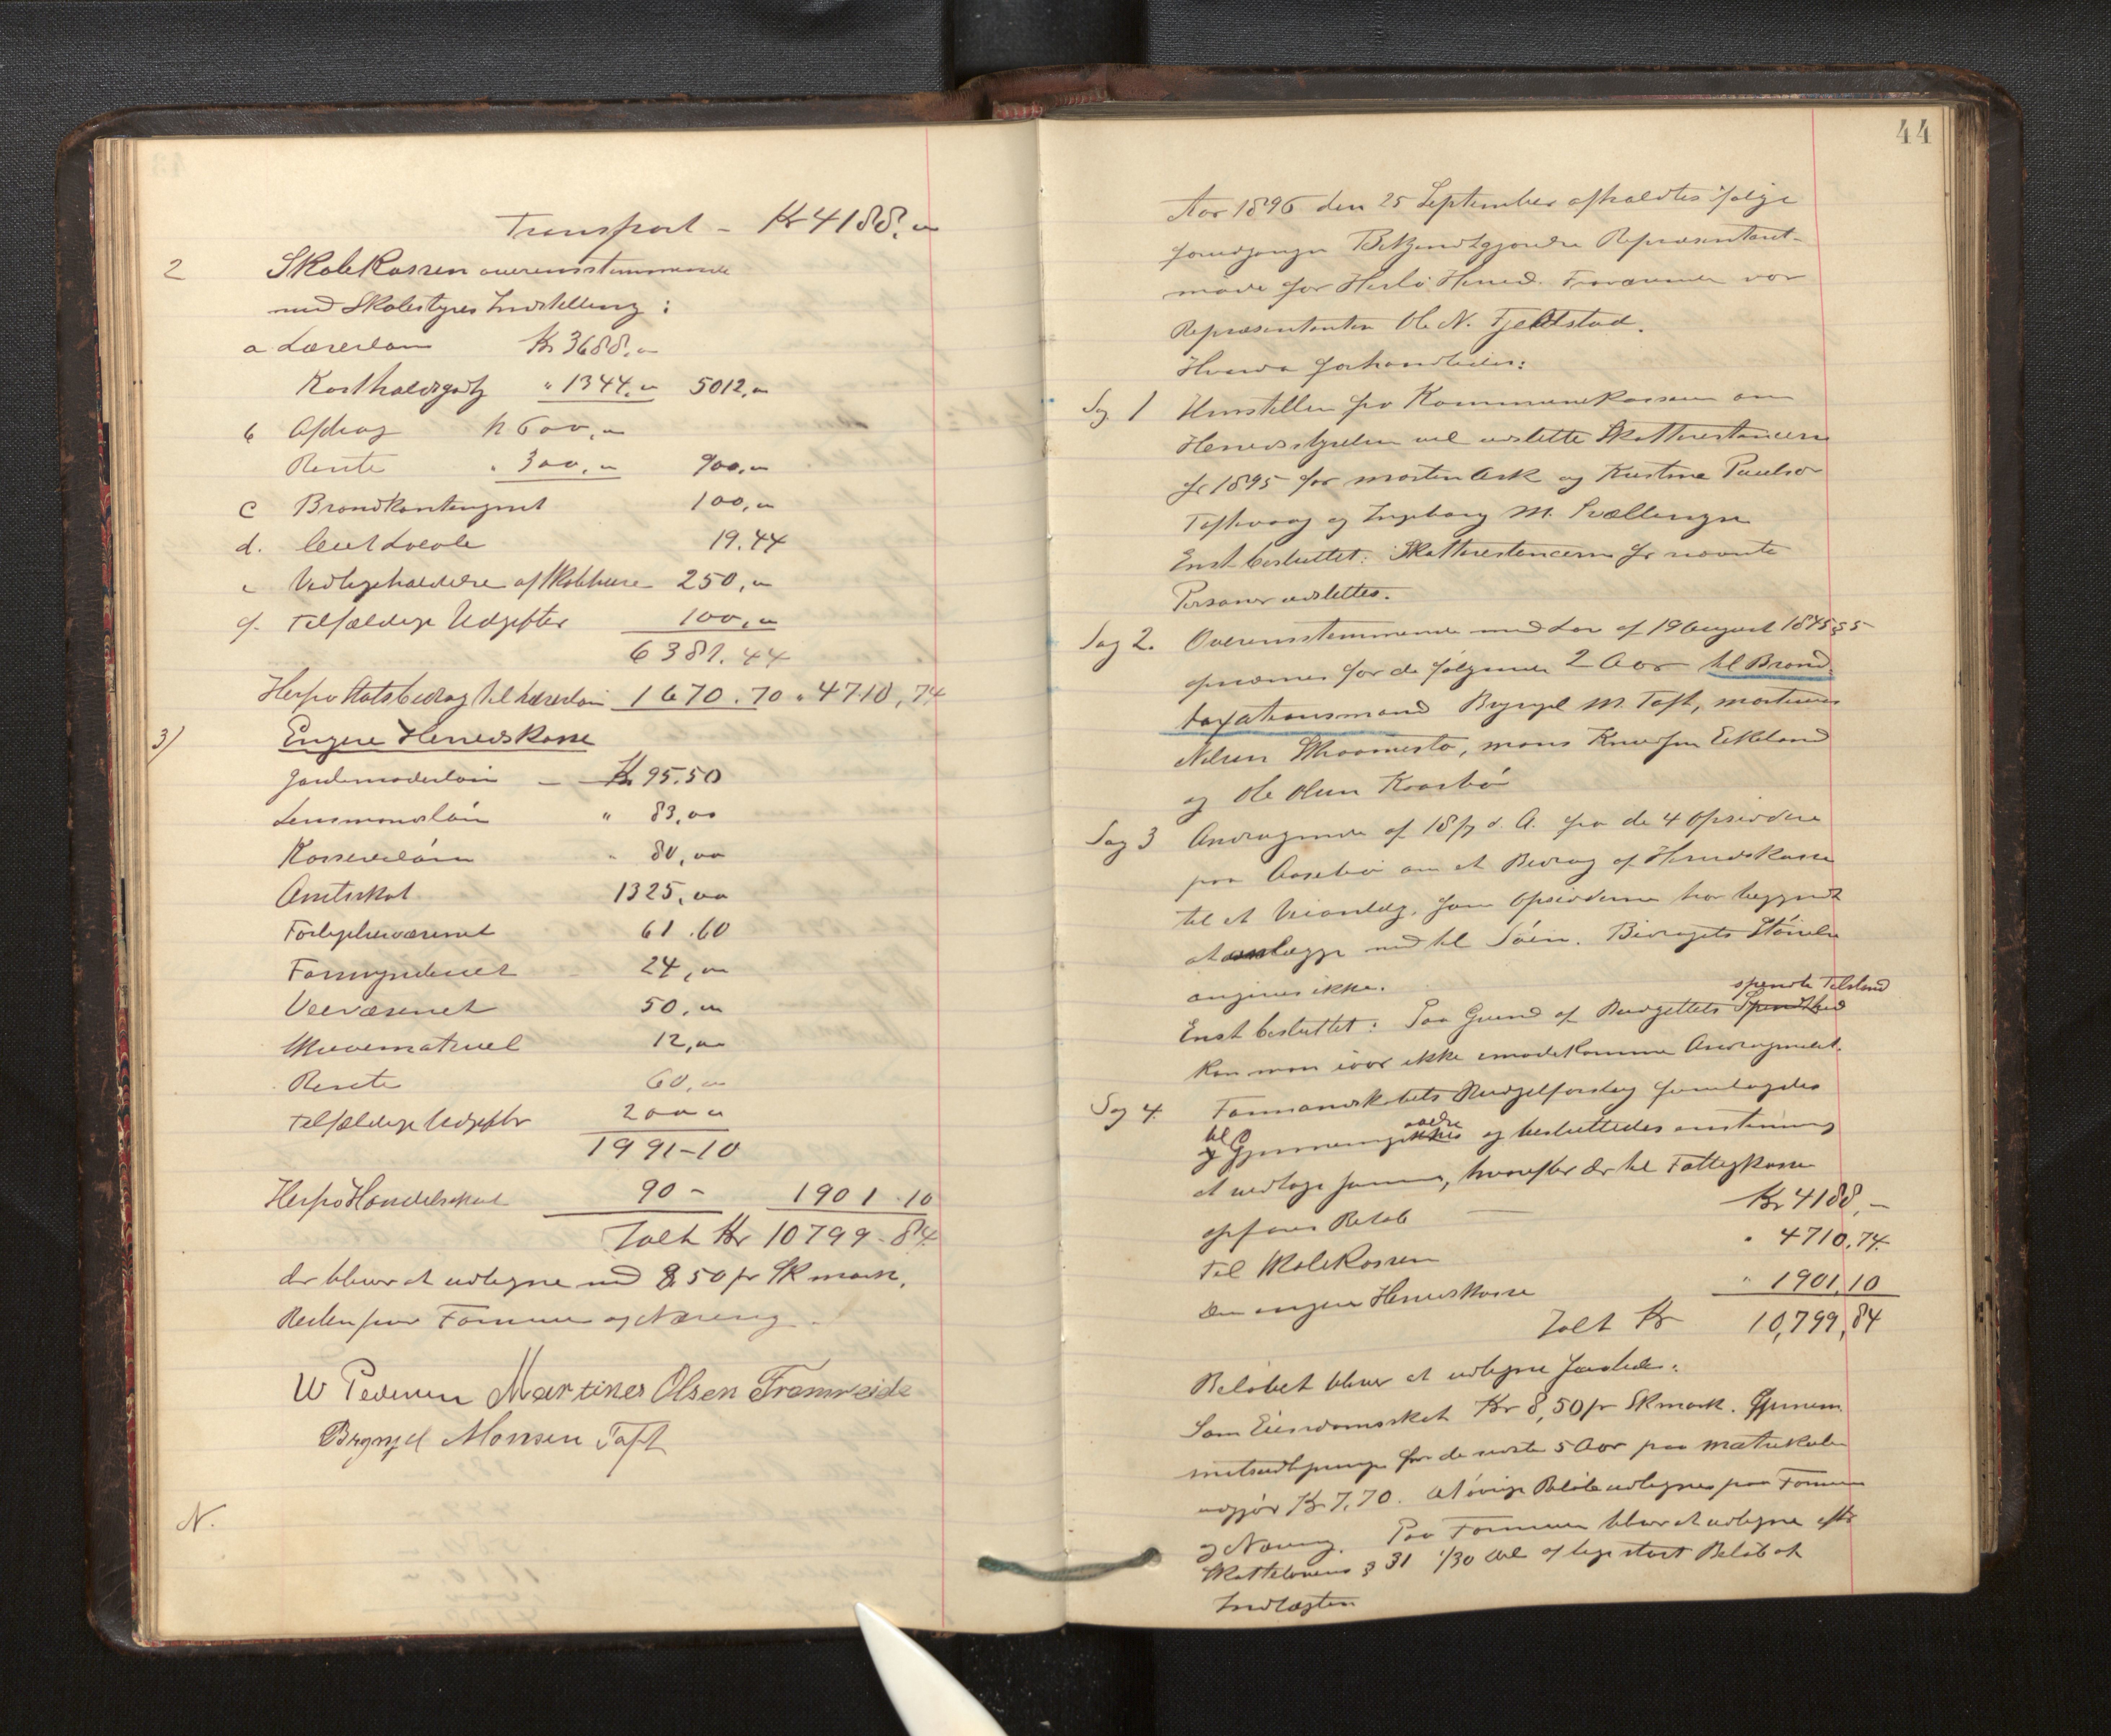 Transport – Kr 4188,00
2 Skolekassen overensstemmende
med Skolestyrets Indstilling:
a Lærerløn Kr 3688,00
Kostholdsgodtg " 1344,00 5012,00
b Afdrag Kr 600,00
Rente " 300,00 900,00
c Brandkontingent 100,00
d. Leiet Locale 19.44
e Vedligeholdelse af Skolehuse 250,00
f. Tilfældige Udgifter 100,00
6381.44
Herfra Statsbidrag til Lærerløn 1670.70 " 4710,74
3) Engere Herredskasse
Jordemoderløn – Kr 95.50
Lensmandsløn " 83,00
Kassererløn " 80,00
Amtsskat 1325,00
Forligelsesvæsenet 61.60
Formynderiet 24,00
Veivæsenet 50,00
Skrivemateriel 12,00
Rente 60,00
Tilfældige Udgifter 200 00
1991–10
Herfra Handelsskat 90 – 1901.10
Ialt Kr 10799–84
der bliver at udligne med 8 50 pr Skmark,
Resten paa Formue og Næring.
W Pedersen Martines Olsen Fromreide
Bryngel Monsen Toft
N.
44
Aar 1896 den 25 September afholdtes ifølge
forudgangen Bekjendtgjørelse Repræsentant-
møde for Herlø Herred. Fraværende var
Repræsentanten Ole N. Fjeldstad.
Hvorda forhandledes:
Sag 1 Henstillen fra Kommunekassen om
Herredsstyrelsen vil udslette Skatterestancerne
for 1895 for Morten Ask og Kristine Paulsdr
Toftevaag og Ingeborg M. Svællingen
Enst besluttet: Skatterestancerne for nævnte
Personer udslettes.
Sag 2. Overensstemmende med Lov af 19 August 1845 § 5
opnævnes for de følgende 2 Aar til Brand-
taxationsmænd Bryngel M. Toft, Martinus
Nilsen Skraamestø, Mons Knudsen Eikeland
og Ole Olsen Kaarbø
Sag 3 Andragende af 18/7 d. A. fra de 4 Opsiddere
paa Aasebø om et Bidrag af Herredskassen
til et Veianlæg, som Opsidderne har begyndt
at anlægge ned til Søen. Bidragets Størrelse
angives ikke.
spændte Tilstand
Enst besluttet: Paa Grund af Budgettets Spændthed
kan man iaar ikke imødekomme Andragendet.
Sag 4. Formandskabets Budgetforslag foretoges
til Gjennemgaaelse og besluttedes enstemmig
at vedtage samme, hvorefter der til Fattigkassen
opføres Beløb – Kr 4188,–
Til Skolekassen " 4710,74.
Den engere Herredskasse " 1901,10
Ialt Kr 10,799,84
Beløbet bliver at udligne saaledes:
Som Eiendomsskat Kr 8,50 pr Skmark. Gjennem
snitsudligninge for de sidste 5 Aar paa Matrikulen
udgjør Kr 7,70. Det øvrige Beløb udlignes paa Formue
og Næring. Paa Formuen bliver at udligne efter
Skattelovens § 31 1/30 Del af lige stort Beløb af
Indtægten